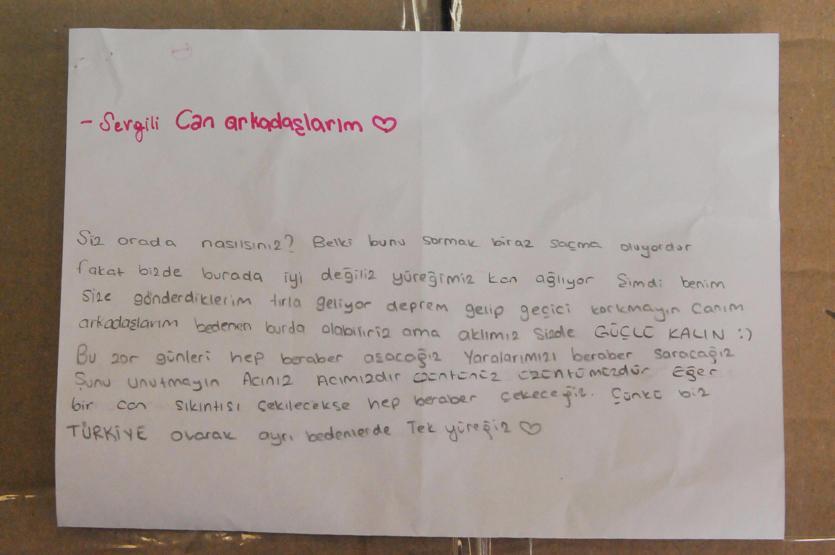 - Sergili Can arkadaşlarım ♡
Siz orada nasılsınız? Belki bunu sormak biraz saçma oluyordur
fakat bizde burada iyi değiliz yüreğimiz kan ağlıyor Şimdi benim
size gönderdiklerim tırla geliyor deprem gelip geçici korkmayın Canım
arkadaşlarım bedenen burda olabiliriz ama aklımız sizde GÜÇLÜ KALIN :)
Bu zor günleri hep beraber aşacağız Yaralarımızı beraber saracağız
Şunu unutmayın Acınız Acımızdır üzüntünüz üzüntümüzdür Eğer
bir can sıkıntısı çekilecekse hep beraber çekeceğiz. Çünkü biz
TÜRKİYE olarak ayrı bedenlerde Tek yüreğiz ♡